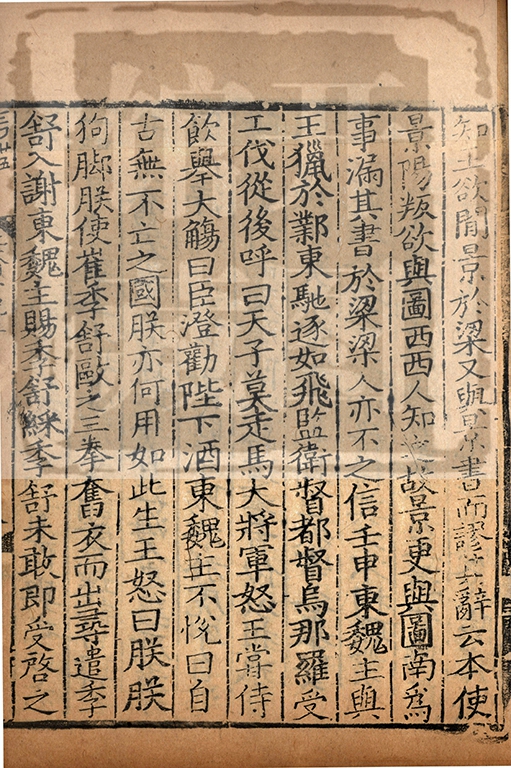 知王欲間景於梁又與景書而謬其辭云本使
景陽叛欲與圖西西人知之故景更與圖南為
事漏其書於梁梁人亦不之信壬申東魏主與
王獵於鄴東馳逐如飛監衛都督烏那羅受
工伐從後呼曰天子莫走馬大將軍怒王嘗侍
飲舉大觴曰臣澄勸陛下酒東魏主不悅曰自
古無不亡之國朕亦何用如此生王怒曰朕朕
狗脚朕使崔季舒歐之三拳奮衣而出尋遣季
舒入謝東魏主賜季舒綵季舒未敢即受啓之